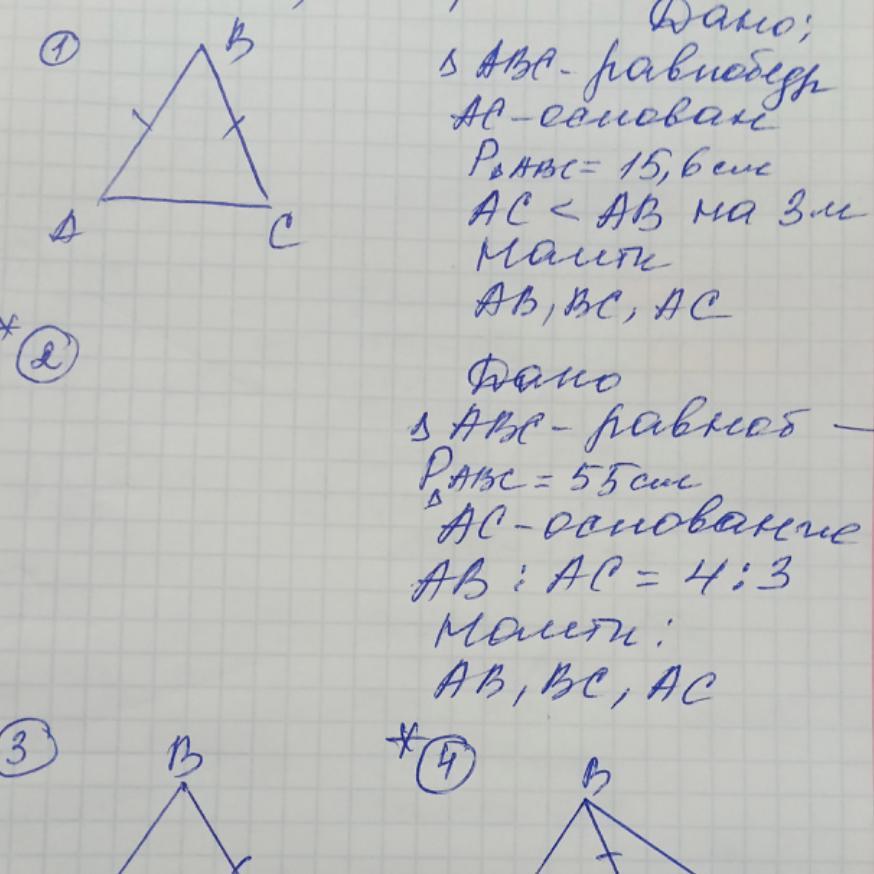 1
B
A
C
Дано:
Δ ABC - равнобедр
AC - основан
P Δ ABC = 15,6 см
AC < AB на 3 м
Найти
AB, BC, AC
* 2
Дано
Δ ABC - равноб -
P Δ ABC = 55 см
AC - основание
AB : AC = 4 : 3
Найти:
AB, BC, AC
3
B
* 4
B